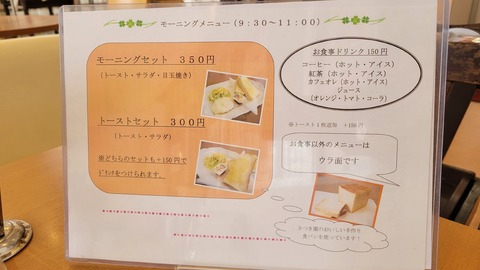 モーニングメニュー(9:30~11:00)
モーニングセット 350円
(トースト・サラダ・目玉焼き)
トーストセット 300円
(トースト・サラダ)
※どちらのセットも+150円で
ドリンクをつけられます。
お食事ドリンク150円
コーヒー(ホット・アイス)
紅茶(ホット・アイス)
カフェオレ(ホット・アイス)
ジュース
(オレンジ・トマト・コーラ)
※トースト1枚追加 +150円
お食事以外のメニューは
ウラ面です
さつき園のおいしい手作り
食パンを使っています!